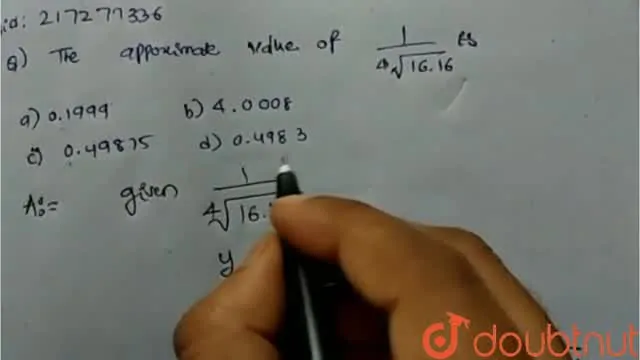 id: 217277336
Q) The approximate value of 1/∜16.16 is
a) 0.1999 b) 4.0008
c) 0.49875 d) 0.4983
A:= given 1/∜16.
y
doubtnut